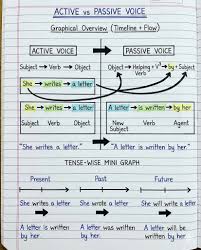 ACTIVE vs PASSIVE VOICE
Graphical Overview (Timeline + Flow)
ACTIVE VOICE
PASSIVE VOICE
Subject → Verb → Object
Object → Helping + V³ → by + Subject
Verb
She → writes → a letter
She → writes → a letter
A letter → is written → by her
Subject Verb Object
New Subject Verb Agent
"She writes a letter."
"A letter is written by her."
TENSE-WISE MINI GRAPH
Present Past Future
She writes a letter She wrote a letter She will write a letter
A letter is written by her.
A letter was written by her.
A letter will be written by her.